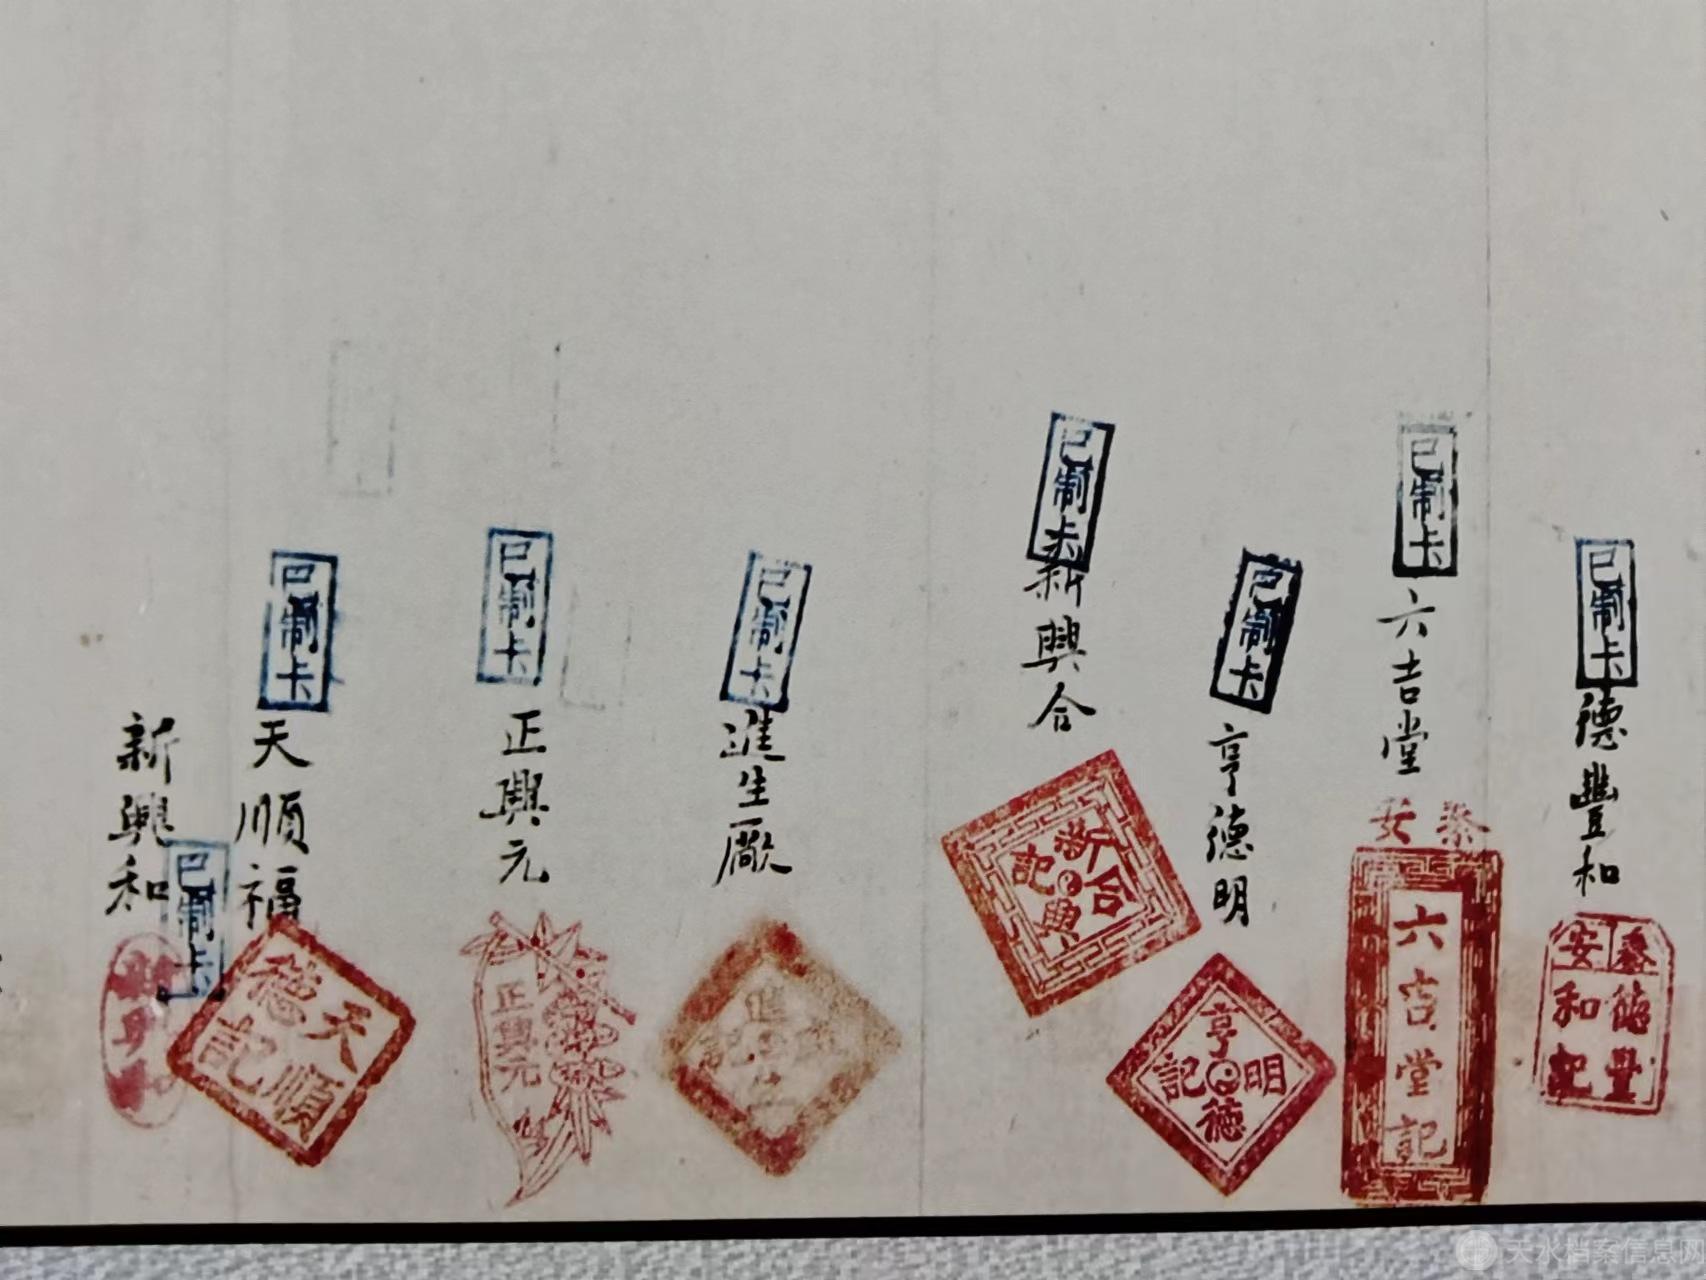 已制卡
德豐和
泰安
德豐
和記
已制卡
六吉堂
泰安
六吉堂記
已制卡
亨德明
亨德明記
已制卡
新興合
新興合記
已制卡
進生厰
進生
記
已制卡
正興元
正興元
已制卡
天順福
天順
德記
已制卡
新興和
天水档案信息网